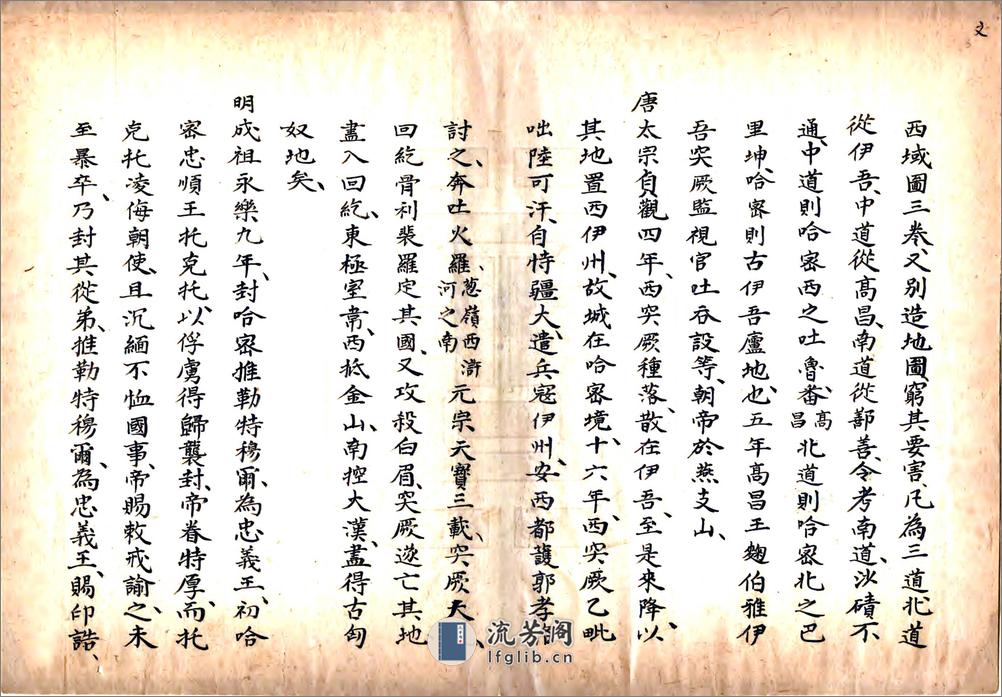 文
西域圖三卷、又別造地圖、窮其要害、凡為三道、北道
從伊吾、中道從高昌、南道從鄯善、今考南道、沙磧不
通、中道則哈密西之吐魯番、高昌北道則哈密北之巴
里坤、哈密則古伊吾廬地也、五年高昌王麴伯雅伊
吾突厥監視官吐吞設等、朝帝於燕支山、
唐太宗負觀四年、西突厥種落、散在伊吾、至是來降、以
其地置西伊州、故城在哈密境、十六年、西突厥乙毗
咄陸可汗、自恃疆大、遣兵寇伊州、安西都護郭孝
討之、奔吐火羅、葱嶺西、滸河之南元宗天寶三載、突厥大、
回紇骨利裴羅定其國、又攻殺白眉、突厥遂亡、其地
盡入回紇、東極室韋、西抵金山、南控大漠、盡得古匈
奴地矣、
明成祖永樂九年、封哈密推勒特穆爾、為忠義王、初哈
密忠順王托克托、以俘虜得歸襲封、帝眷特厚、而托
克托凌侮朝使、且沉緬不恤國事、帝賜敕戒諭之、未
至暴卒、乃封其從弟、推勒特穆爾、為忠義王、賜印誥、
流芳閣
lfglib.cn